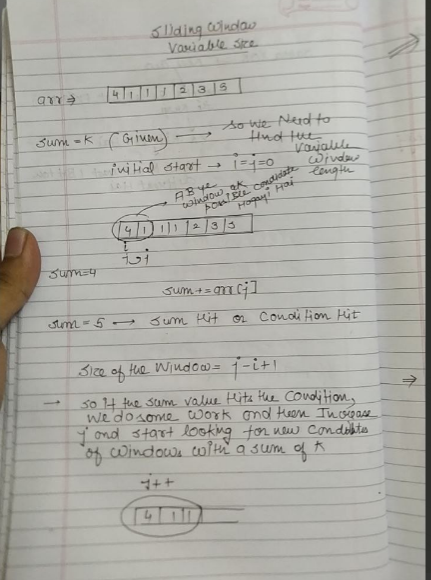 Sliding Window
Variable size
arr ⇒ 4 | 1 | 1 | 1 | 2 | 3 | 5
sum = K (Given) → so we Need to
find the
Variable
Window
length
initial start → i=j=0
AB ye
window ek
possible candidate
Hogayi Hai
4 | 1 | 1 | 1 | 2 | 3 | 5
i
j j
sum=4
sum+=arr[j]
sum = 5 → sum Hit or Condition Hit
Size of the Window = j-i+1
→ so if the sum value Hits the Condition,
we do some work and then Increase
j and start looking for new Candidates
of windows with a sum of K
j++
4 | 1 | 1